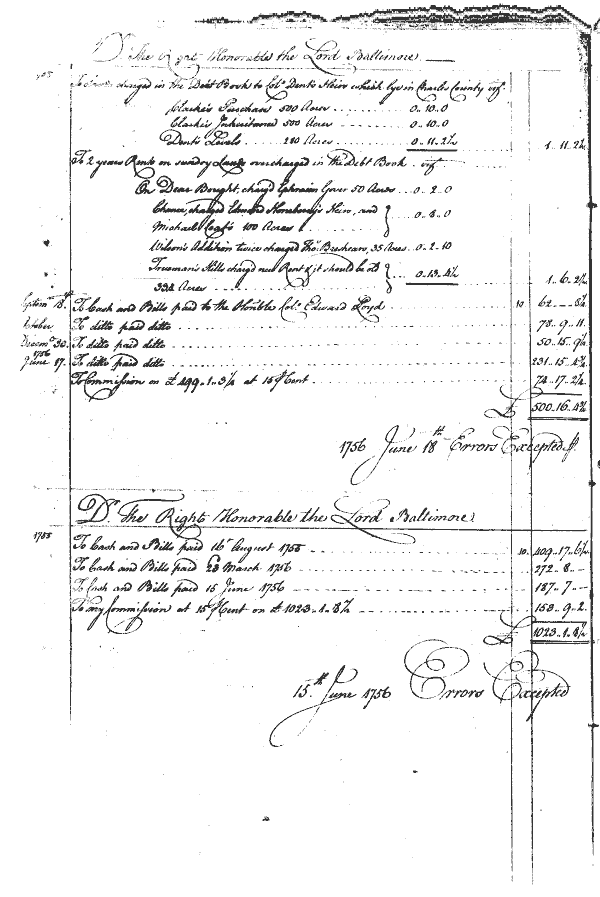 Dr. The Right Honorable the Lord Baltimore
charged in the Debt Book to Colo. Dents Heir which lye in Charles County vizt.
Clarkes Purchase 500 Acres 0..10..0
Clarkes Inheritance 500 Acres 0..10..0
Dents Levels 280 Acres 0..11..2½ 1..11..2½
To 2 years Rents on sundry Lands overcharged in the Debt Book vizt
On Dear Bought, charg'd Ephraim Gover 50 Acres 0..2..0
Chance, charged Edward Heir, and
Michael 100 Acres 0..8..0
Wilson's Addition twice charged Thos. Beshears, 35 Acres 0..2..10
Trueman's Hills charg'd new Rent & it should be old
334 Acres 0..13..4½ 1..6..2½
Septemr. 18. To Cash and Bills paid to the Honble Colo. Edward Lloyd 10 62
October To ditto paid ditto 78..9..11
Decemr. 30. To ditto paid ditto 50..15..
1756
June 17. To ditto paid ditto 231..15..
To Commission on £499..1..3¼ at 15 ⅌ Cent 74..17..2¼
£ 500..16..
1756 June 18th Errors Excepted ⅌
Dr. The Right Honorable the Lord Baltimore
1755
To Cash and Bills paid 16 August 1755 10 409..17..
To Cash and Bills paid 23 March 1756 272..8..--
To Cash and Bills paid 15 June 1756 187..7..--
To my Commission at 15 ⅌ Cent on £1023..1.. 153..9..2
£ 1023..1..
15th June 1756 Errors Excepted